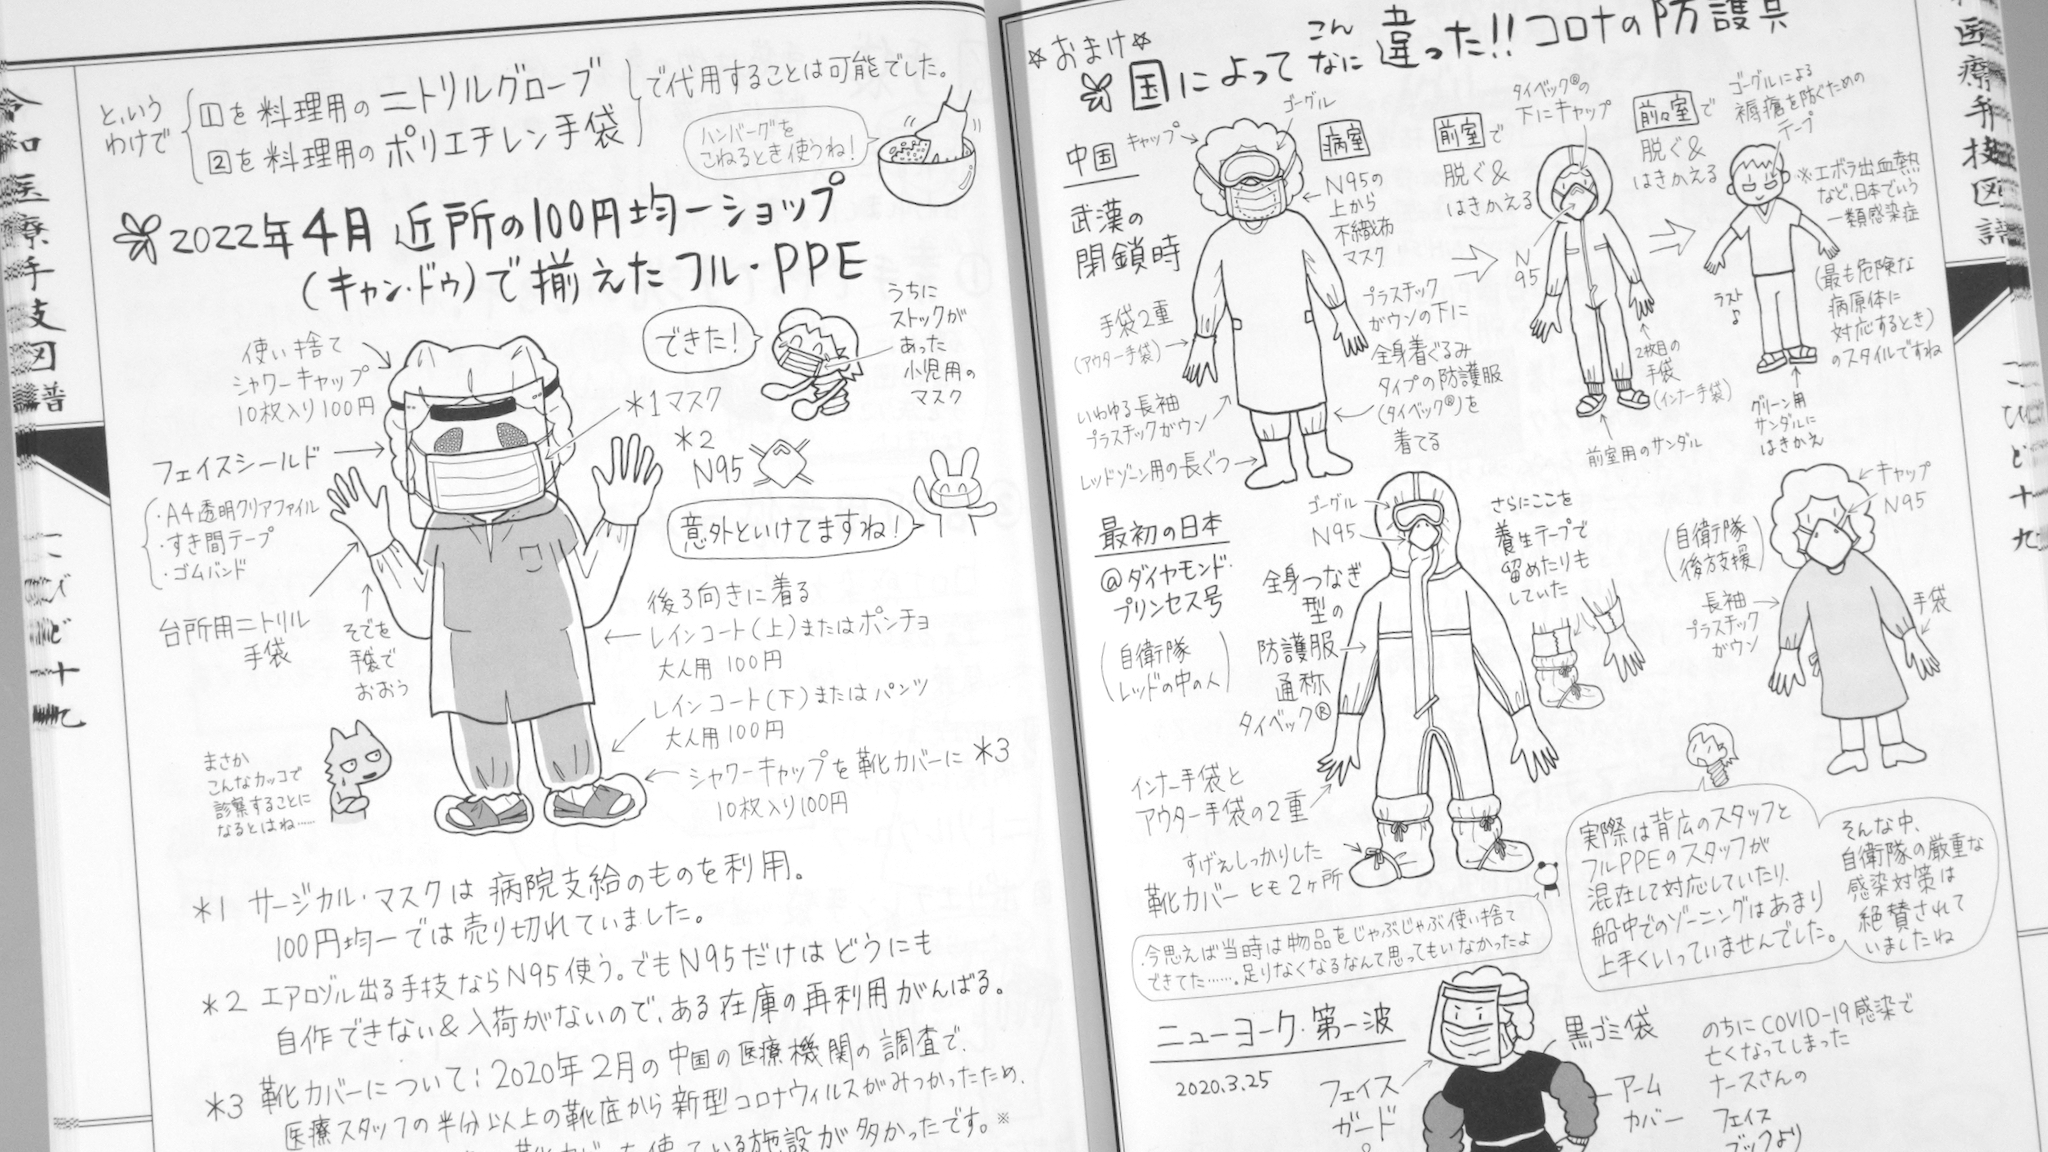 令和医療手技図譜
こびどナ
という
わけで
①を料理用のニトリルグローブ
②を料理用のポリエチレン手袋
で代用することは可能でした。
ハンバーグを
こねるとき使うね!
2022年4月 近所の100円均一ショップ
(キャン・ドゥ)で揃えたフル・PPE
使い捨て
シャワーキャップ
10枚入り100円
フェイスシールド
・A4透明クリアファイル
・すき間テープ
・ゴムバンド
台所用ニトリル
手袋
そでを
手袋で
おおう
まさか
こんなカッコで
診察することに
なるとはね……
できた!
うちに
ストックが
あった
小児用の
マスク
*1マスク
*2
N95
意外といけてますね!
後ろ向きに着る
レインコート(上)またはポンチョ
大人用100円
レインコート(下)またはパンツ
大人用100円
シャワーキャップを靴カバーに *3
10枚入り100円
*1 サージカル・マスクは病院支給のものを利用。
100円均一では売り切れていました。
*2 エアロゾル出る手技ならN95使う。でもN95だけはどうにも
自作できない&入荷がないので、ある在庫の再利用がんばる。
*3 靴カバーについて:2020年2月の中国の医療機関の調査で、
医療スタッフの半分以上の靴底から新型コロナウィルスがみつかったため、
靴カバーを使っている施設が多かったです。※
☆おまけ☆
国によってこんなに違った!!コロナの防護具
中国
武漢の
閉鎖時
キャップ
ゴーグル
病室
N95の
上から
不織布
マスク
手袋2重
(アウター手袋)
いわゆる長袖
プラスチックガウン
レッドゾーン用の長ぐつ
プラスチック
ガウンの下に
全身着ぐるみ
タイプの防護服
(タイベック®)を
着てる
前室で
脱ぐ&
はきかえる
タイベック®の
下にキャップ
N
95
2枚目の
手袋
(インナー手袋)
前室用のサンダル
前々室で
脱ぐ&
はきかえる
ゴーグルによる
褥瘡を防ぐための
テープ
ラスト♪
グリーン用
サンダルに
はきかえ
※エボラ出血熱
など、日本でいう
一類感染症
(最も危険な
病原体に
対応するとき)
のスタイルですね
最初の日本
@ダイヤモンド・
プリンセス号
(自衛隊
レッドの中の人)
ゴーグル
N95
全身つなぎ
型の
防護服
通称
タイベック®
インナー手袋と
アウター手袋の2重
すげえしっかりした
靴カバー ヒモ2ヶ所
さらにここを
養生テープで
留めたりも
していた
(自衛隊
後方支援)
キャップ
N95
長袖
プラスチック
ガウン
手袋
実際は背広のスタッフと
フルPPEのスタッフが
混在して対応していたり、
船中でのゾーニングはあまり
上手くいっていませんでした。
そんな中、
自衛隊の厳重な
感染対策は
絶賛されて
いましたね
今思えば当時は物品をじゃぶじゃぶ使い捨て
できてた……。足りなくなるなんて思ってもいなかったよ
ニューヨーク・第一波
2020.3.25
フェイス
ガード
黒ゴミ袋
アーム
カバー
のちにCOVID-19感染で
亡くなってしまった
ナースさんの
フェイス
ブックより
医療手技図譜
こびどナ九